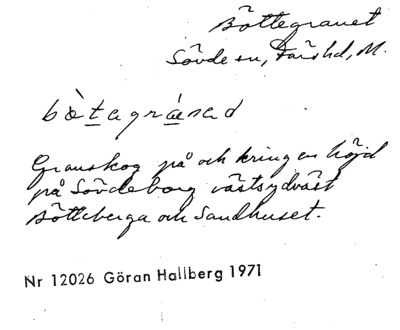 Böttegranet
Sövde sn, Färs hd, M.
bòtagrànad
Granskog på och kring en höjd
på Sövdeborg västsydväst
Bötteberga och Sandhuset.
Nr 12026 Göran Hallberg 1971